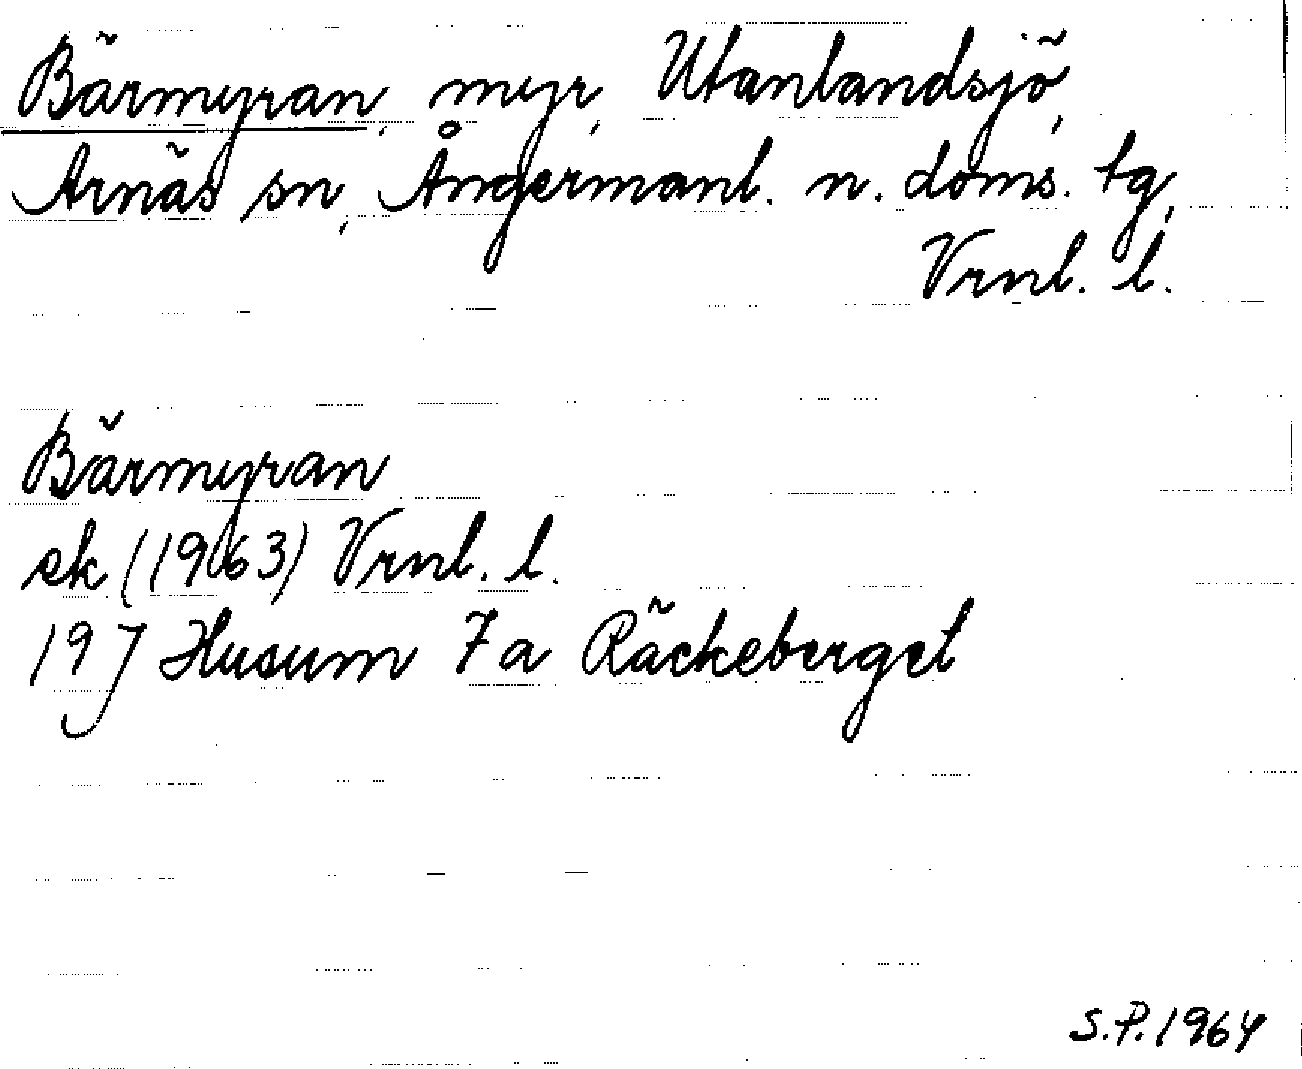 Bärmyran, myr, Utanlandsjö,
Arnäs sn, Ångermanl. n. doms. tg,
Vrnl. l.
Bärmyran
ek (1963) Vrnl. l.
19J Husum 7a Räckeberget
S.P. 1964